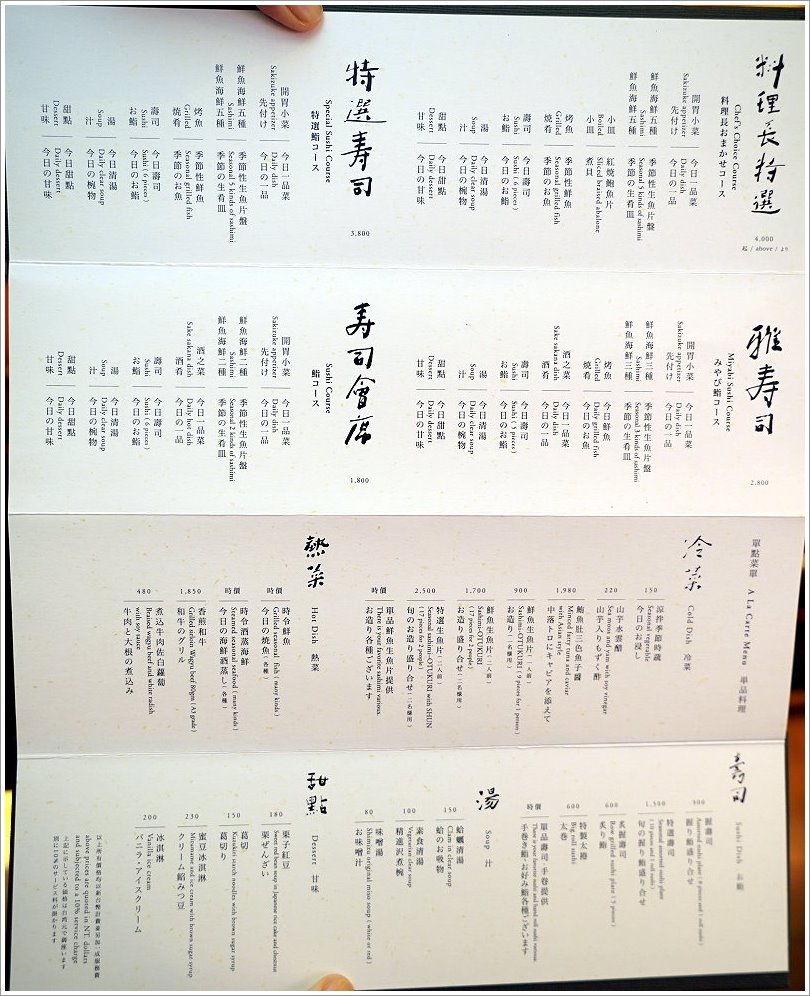 料理長特選
Chef's Choice Course
料理長おまかせコース
4,000
起 / above / より
開胃小菜 今日一品菜
Sakizuke appetizer Daily dish
先付け 今日の一品
鮮魚海鮮五種 季節性生魚片盤
Sashimi Seasonal 5 kinds of sashimi
鮮魚海鮮五種 季節の生肴皿
小皿 紅燒鮑魚片
Boiled Sliced braised abalone
小皿 煮貝
烤魚 季節性鮮魚
Grilled Seasonal grilled fish
焼肴 季節のお魚
壽司 今日壽司
Sushi Sushi ( 6 pieces )
お鮨 今日のお鮨
湯 今日清湯
Soup Daily clear soup
汁 今日の椀物
甜點 今日甜點
Dessert Daily dessert
甘味 今日の甘味
特選寿司
Special Sushi Course
特選鮨コース
3,800
開胃小菜 今日一品菜
Sakizuke appetizer Daily dish
先付け 今日の一品
鮮魚海鮮五種 季節性生魚片盤
Sashimi Seasonal 5 kinds of sashimi
鮮魚海鮮五種 季節の生肴皿
烤魚 季節性鮮魚
Grilled Seasonal grilled fish
焼肴 季節のお魚
壽司 今日壽司
Sushi Sushi ( 6 pieces )
お鮨 今日のお鮨
湯 今日清湯
Soup Daily clear soup
汁 今日の椀物
甜點 今日甜點
Dessert Daily dessert
甘味 今日の甘味
雅寿司
Miyabi Sushi Course
みやび鮨コース
2,800
開胃小菜 今日一品菜
Sakizuke appetizer Daily dish
先付け 今日の一品
鮮魚海鮮三種 季節性生魚片盤
Sashimi Seasonal 3 kinds of sashimi
鮮魚海鮮三種 季節の生肴皿
烤魚 今日鮮魚
Grilled Daily grilled fish
焼肴 今日のお魚
酒之菜 今日一品菜
Sake sakana dish Daily dish
酒肴 今日の一品
壽司 今日壽司
Sushi Sushi ( 5 pieces )
お鮨 今日のお鮨
湯 今日清湯
Soup Daily clear soup
汁 今日の椀物
甜點 今日甜點
Dessert Daily dessert
甘味 今日の甘味
寿司會席
Sushi Course
鮨コース
1,800
開胃小菜 今日一品菜
Sakizuke appetizer Daily dish
先付け 今日の一品
鮮魚海鮮二種 季節性生魚片盤
Sashimi Seasonal 2 kinds of sashimi
鮮魚海鮮二種 季節の生肴皿
酒之菜 今日一品菜
Sake sakana dish Daily hot dish
酒肴 今日の一品
壽司 今日壽司
Sushi Sushi ( 6 pieces )
お鮨 今日のお鮨
湯 今日清湯
Soup Daily clear soup
汁 今日の椀物
甜點 今日甜點
Dessert Daily dessert
甘味 今日の甘味
單點菜單 A La Carte Menu 単品料理
冷菜 Cold Dish 冷菜
150 涼拌季節時蔬
Seasonal vegetable
今日のお浸し
220 山芋水雲醋
Sea moss and yam with soy vinegar
山芋入のもずく酢
1,980 鮪魚肚三色魚子醬
Minced fatty tuna and caviar
with Asian style
中落トロにキャビアを添えて
900 鮮魚生魚片(一人前)
Sashimi-OTUKURI ( 9 pieces for 1 person )
お造り盛り合せ(一名様用)
1,700 鮮魚生魚片(二人前)
Sashimi-OTUKURI
( 17 pieces for 2 people )
お造り盛り合せ(二名様用)
2,500 特選生魚片(二人前)
Seasonal sashimi-OTUKURI with SHUN
( 17 pieces for 2 people )
旬のお造り盛り合せ(二名様用)
時價 單品鮮魚生魚片提供
There is your favorite sashimi various.
お造り各種ございます
熱菜 Hot Dish 熱菜
時價 時令鮮魚
Grilled seasonal fish ( many kinds )
今日の焼魚(各種)
時價 時令酒蒸海鮮
Steamed seasonal seafood ( many kinds )
今日の海鮮酒蒸し(各種)
1,850 香煎和牛
Grilled sirloin Wagyu beef 80gm (A3 grade)
和牛のグリル
480 煮込牛肉佐白蘿蔔
Braised wagyu beef and white radish
with soy sauce
牛肉と大根の煮込み
寿司 Sushi Dish お鮨
900 握壽司
握り鮨盛り合せ
1,500 特選壽司
旬の握り鮨盛り合せ
600 炙握壽司
炙り鮨
600 特製太捲
Big roll sushi
太巻
時價 單品壽司·手卷提供
There is your favorite sushi and hand roll sushi various.
手巻き鮨·お好み鮨各種ございます
湯 Soup 汁
150 蛤蠣清湯
Clam in clear soup
蛤のお吸物
100 素食清湯
Vegetarian clear soup
精進沢煮椀
80 味噌湯
Shimizu original miso soup ( white or red )
お味噌汁
甜點 Dessert 甘味
180 栗子紅豆
Sweet red bean soup in Japanese rice cake and chestnut
栗ぜんざい
150 葛切
Kuzukiri starch noodles with brown sugar syrup
葛切り
230 蜜豆冰淇淋
Mitsumame and ice cream with brown sugar syrup
クリーム餡みつ豆
200 冰淇淋
Vanilla ice cream
バニラ·アイスクリーム
以上所有價格均以新台幣計費並另加一成服務費
above prices are quoted in NT. dollars
and subjected to a 10% service charge
上記に示している価格は台湾元で御座います
別に10%のサービス料が掛かります